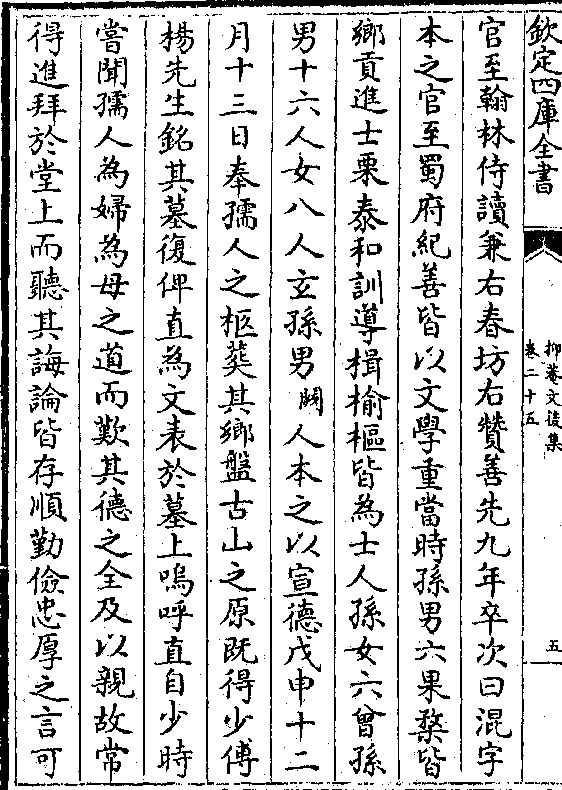 欽定四庫全書
抑菴文後集
卷二十五
五
官至翰林侍讀兼右春坊右贊善先九年卒次曰混字
本之官至蜀府紀善皆以文學重當時孫男六果棨皆
鄉貢進士栗泰和訓導楫榆樞皆為士人孫女六曾孫
男十六人女八人玄孫男闕人本之以宣德戊申十二
月十三日奉孺人之柩葬其鄉盤古山之原既得少傅
楊先生銘其墓復俾直為文表於墓上嗚呼直自少時
嘗聞孺人為婦為母之道而歎其德之全及以親故常
得進拜於堂上而聽其誨論皆存順勤儉忠厚之言可